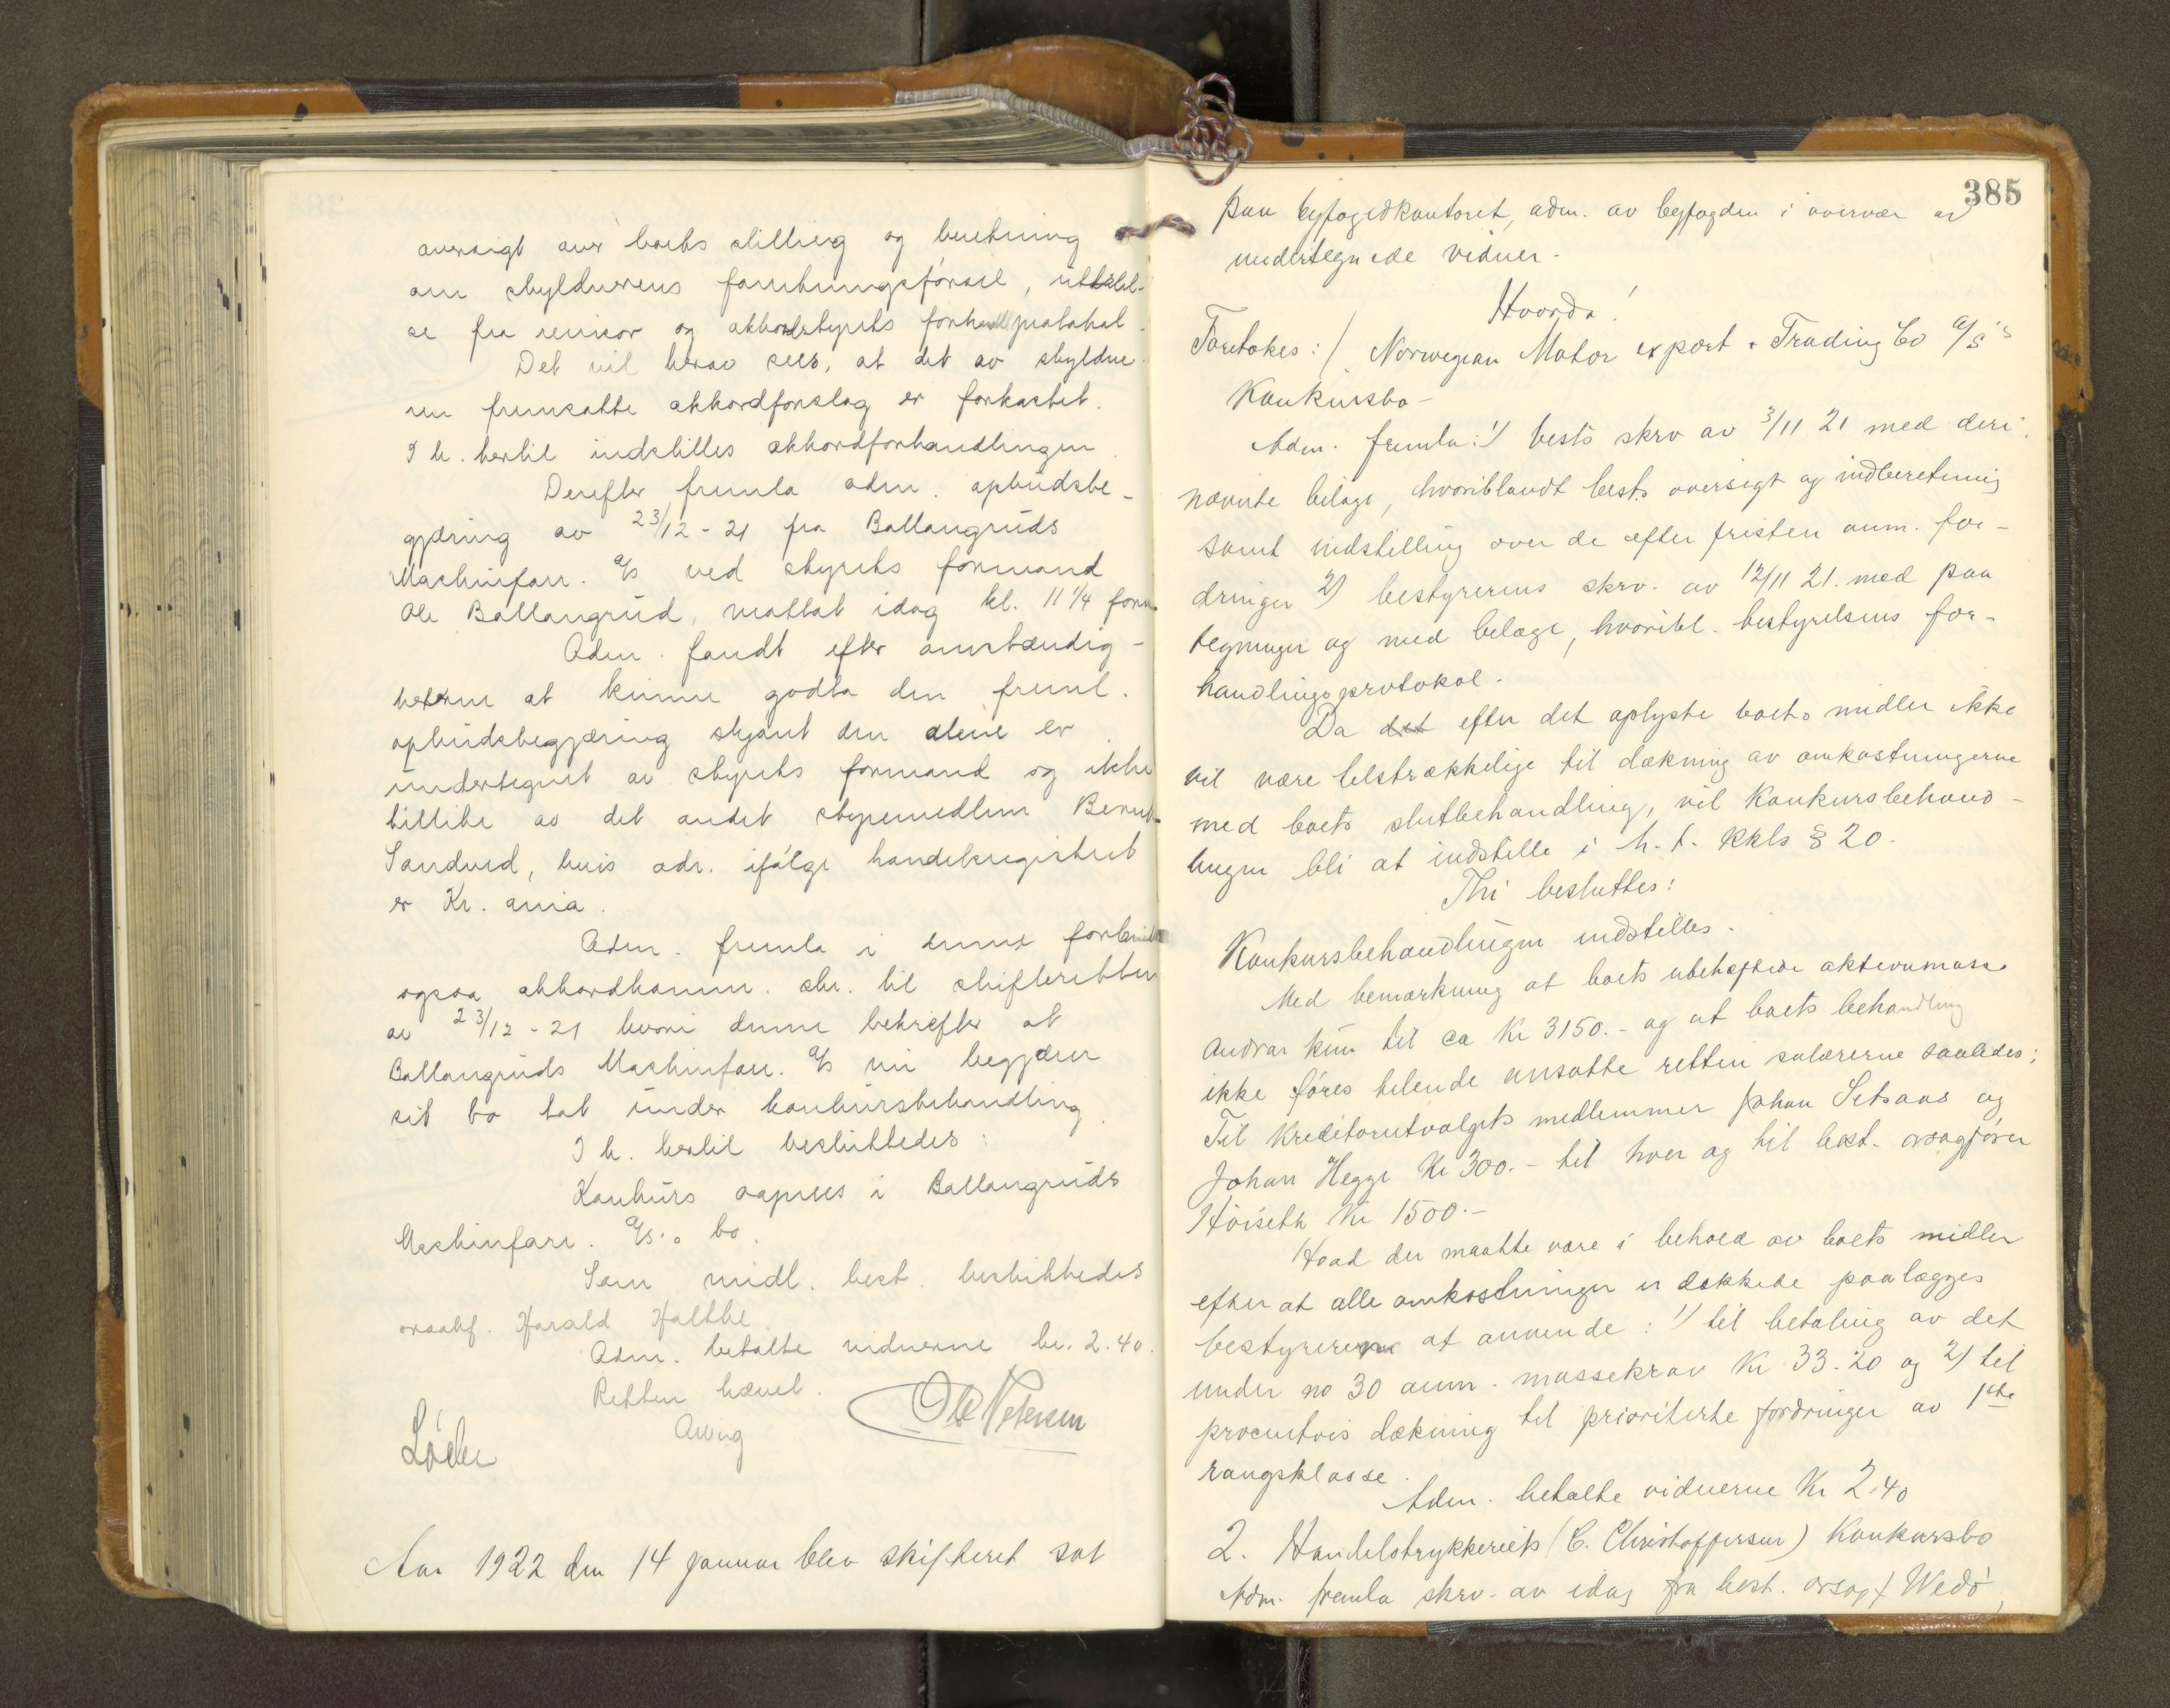 oversigt over boets stilling og beretning
om skyldnerens forretningsførsel, uttalel-
se fra revisor og akkordstyrets forhandl.protokol.
Det vil herav sees, at det av skyldne-
ren fremsatte akkordforslag er forkastet.
I h. hertil indstilles akkordforhandlingen.
Derefter fremla adm. opbudsbe-
gjæring av 23/12-21 fra Ballangruds
Maskinforr. A/S ved styrets formand
Ole Ballangrud, mottat idag kl. 11 1/4 form.
Adm. fandt efter omstændig-
heterne at kunne godta den freml.
opbudsbegjæring skjønt den alene er
undertegnet av styrets formand og ikke
tillike av det andet styremedlem Bernt
Sandved, hvis adr. ifølge handelsregistret
er Kr.ania.
Adm. fremla i denne forbind.
ogsaa akkordkomm. skr. til skifteretten
av 23/12-21 hvori denne bekrefter at
Ballangruds Maskinforr. A/S nu begjærer
sit bo tat under konkursbehandling.
I h. hertil besluttedes:
Konkurs aapnes i Ballangruds
Maskinforr. A/S's bo.
Som midl. best. beskikkedes
orsakf. Harald Holthe
Adm. betalte vidnerne kr. 2.40.
Retten hævet.
Ole Petersen
Løchen
Aar 1922 den 14 januar blev skifteret sat
385
paa byfogedkontoret, adm. av byfogden i overvær av
undertegnede vidner.
Hvorda!
Foretokes: / Norwegian Motor export & Trading Co A/S's
Konkursbo-
Adm. fremla: 1) bests skrv av 3/11 21 med deri
nævnte bilage, hvoriblandt bests oversigt og indberetning
samt indstilling over de efter fristen anm. for-
dringer 2) bestyrerens skrv. av 12/11 21. med paa
tegninger og med belage, hvoribl. bestyrelsens for-
handlingsprotokol.
Da det efter det oplyste boets midler ikke
vil være tilstrækkelige til dækning av omkostningerne
med boets slutbehandling, vil Konkursbehand-
lingen bli at indstille i h. t. kkls § 20.
Thi besluttes:
Konkursbehandlingen indstilles.
Med bemærkning at boets ubeheftede aktivamasse
andrar kun til ca Kr 3150.- og at boets behandling
ikke føres tilende ansatte retten salærerne saaledes:
Til Kreditorutvalgets medlemmer Johan Setsaas og
Johan Hegge Kr 300.- til hver og til best. orsagfører
Höiseth Kr 1500.-
Hvad der maatte være i behold av boets midler
efter at alle omkostninger er dækkede paalægges
bestyreren at anvende: 1) til betaling av det
under no 30 anm. massekrav Kr 33.20 og 2) til
procentvis dækning til prioriterte fordringer av 1ste
rangsklasse.
Adm. betalte vidnerne Kr 2.40
2. Handelstrykkeriets (C. Christoffersen) Konkursbo
Adm. fremla skrv. av idag fra best. orsagf Wedö,